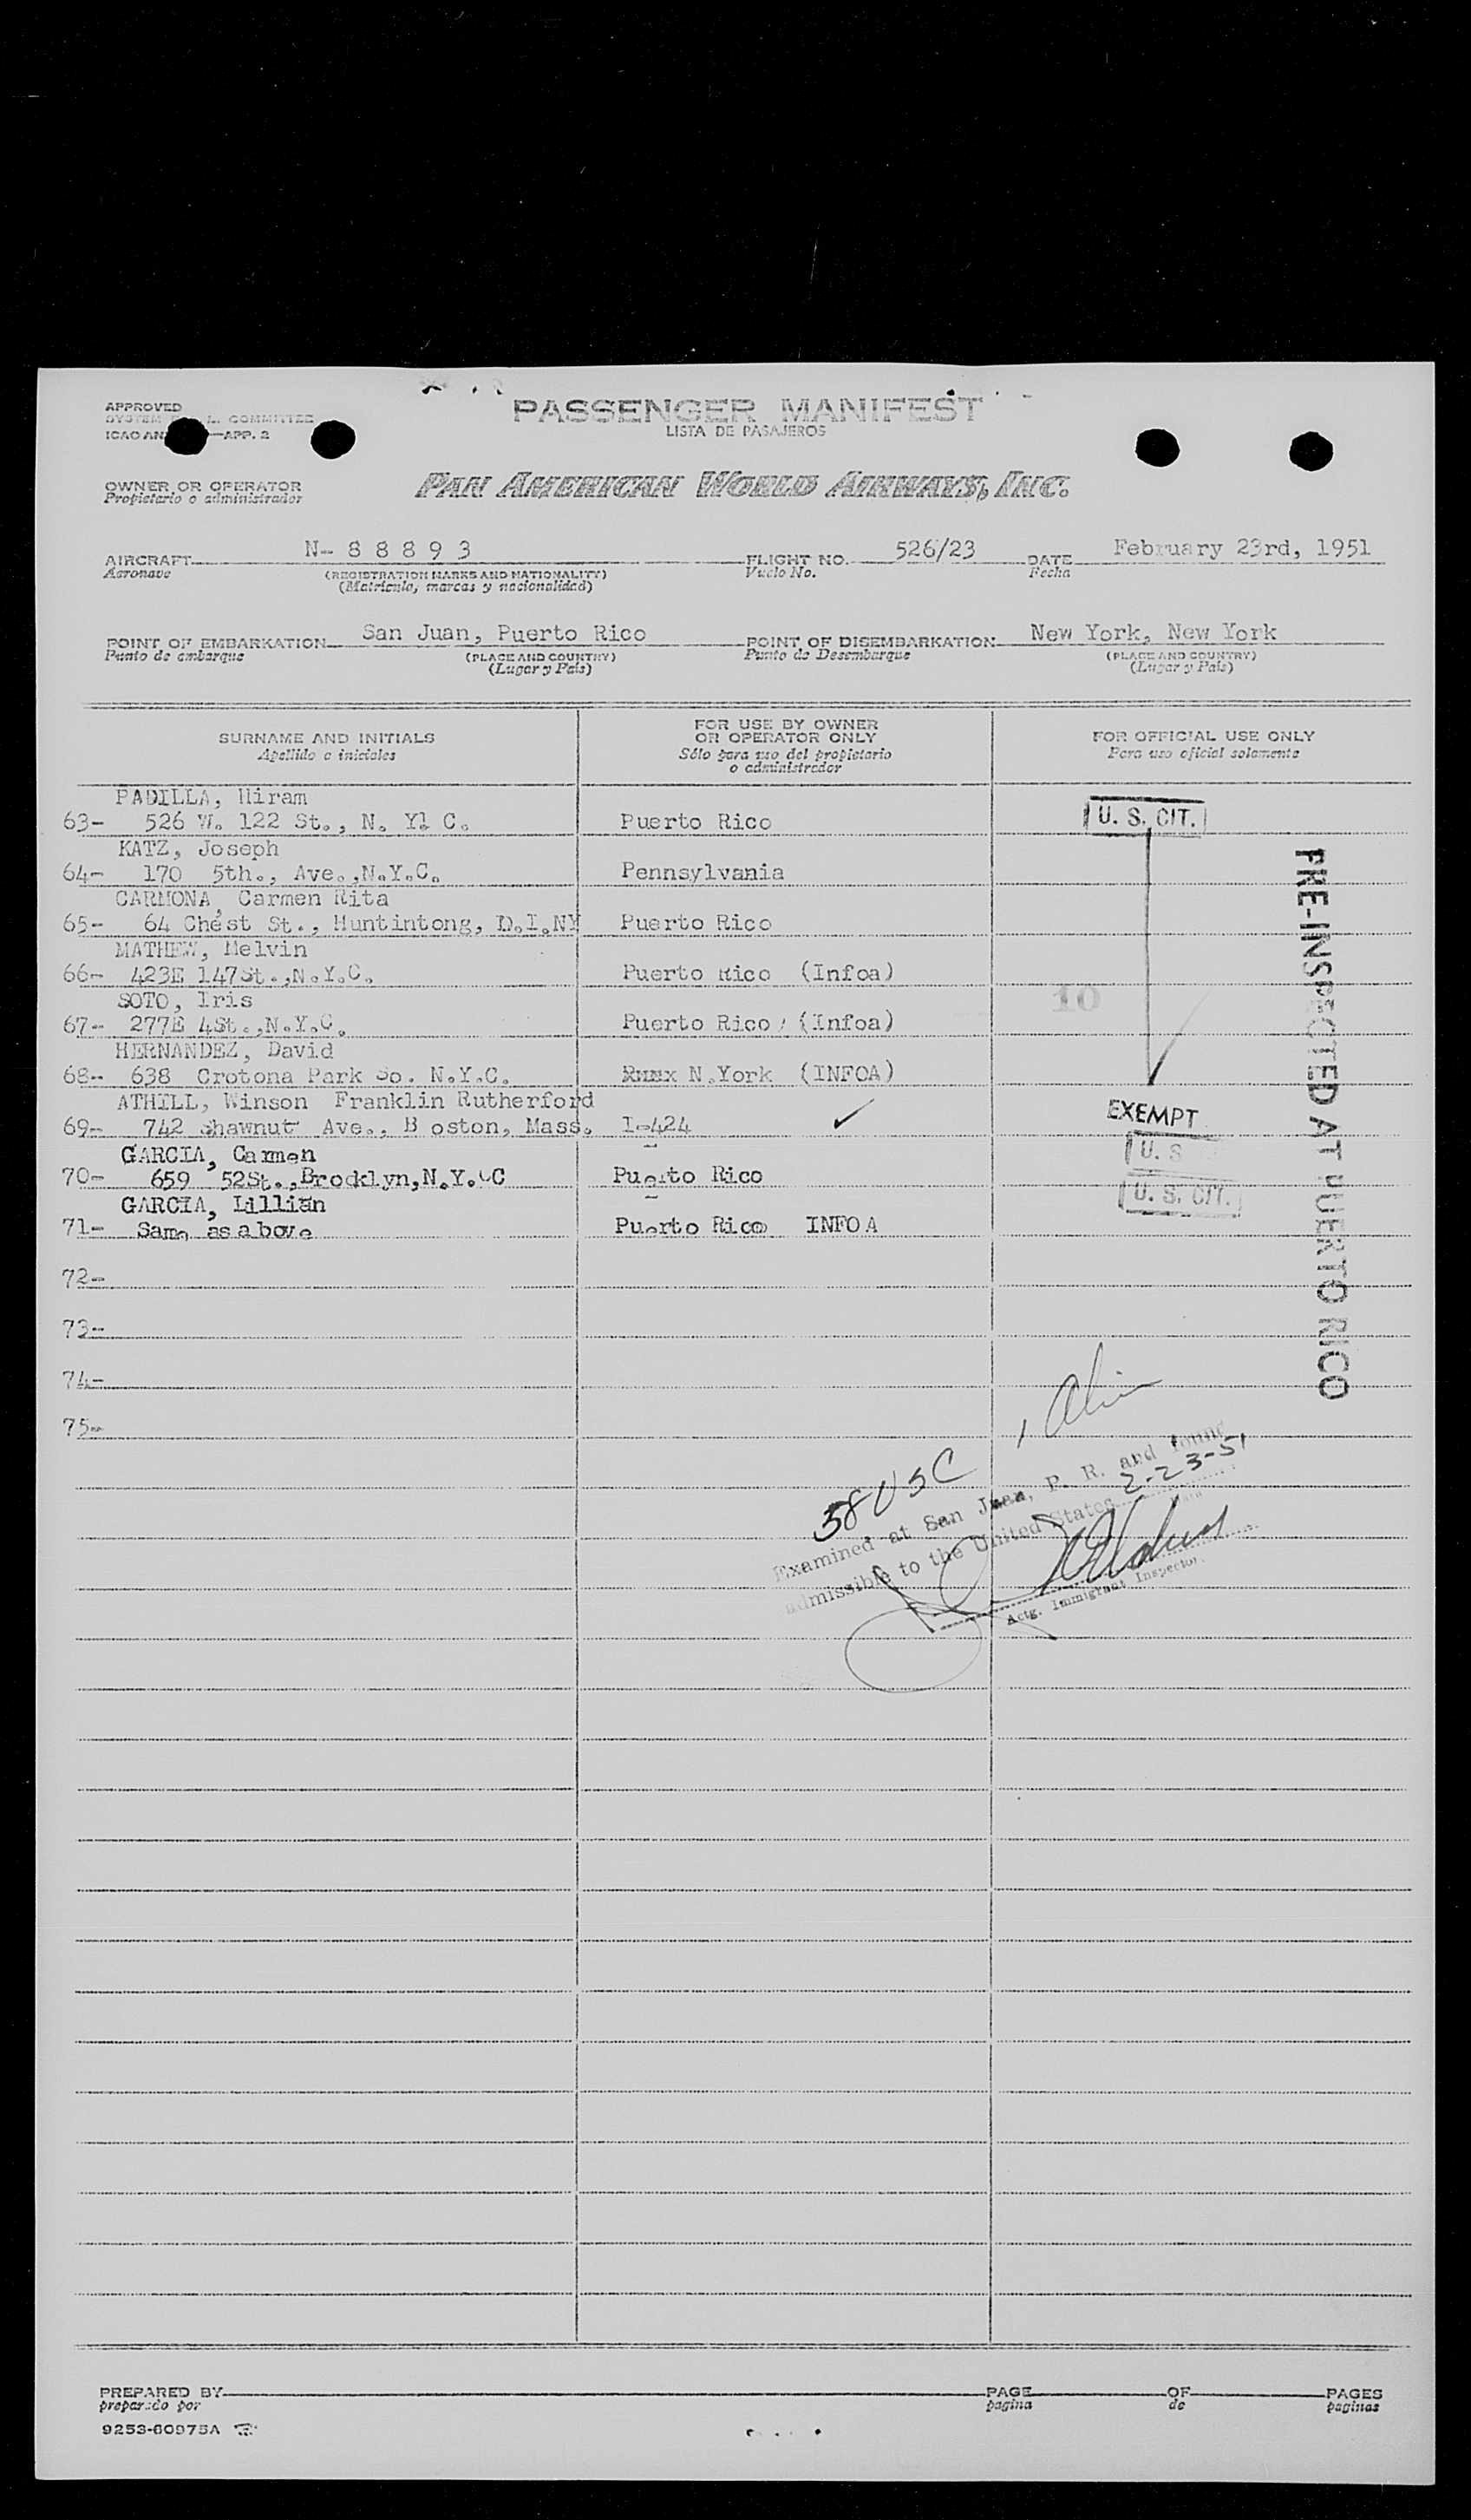 APPROVED
COMMITTEE
ICAO APP. 2
PASSENGER MANIFEST
LISTA DE PASAJEROS
OWNER OR OPERATOR
Propietario o administrador
PAN AMERICAN WORLD AIRWAYS, INC.
AIRCRAFT N- 8 8 8 9 3 FLIGHT NO. 526/23 DATE February 23rd, 1951
Aeronave (REGISTRATION MARKS AND NATIONALITY) Vuelo No. Fecha
(Matrícula, marcas y nacionalidad)
POINT OF EMBARKATION San Juan, Puerto Rico POINT OF DISEMBARKATION New York, New York
Punto de embarque (PLACE AND COUNTRY) Punto de Desembarque (PLACE AND COUNTRY)
(Lugar y País) (Lugar y País)
SURNAME AND INITIALS FOR USE BY OWNER OR OPERATOR ONLY FOR OFFICIAL USE ONLY
Apellido e iniciales Sólo para uso del propietario o administrador Para uso oficial solamente
PADILLA, Hiram
63- 526 W. 122 St., N. Yl C. Puerto Rico U. S. CIT.
KATZ, Joseph
64- 170 5th., Ave.,N.Y.C. Pennsylvania
CARMONA, Carmen Rita
65- 64 Chest St., Huntintong, NY Puerto Rico
MATHEW, Melvin
66- 423E 147St.,N.Y.C. Puerto Rico (Infoa)
SOTO, Iris
67- 277E 4St.,N.Y.C. Puerto Rico (Infoa)
10
HERNANDEZ, David
68- 638 Crotona Park So. N.Y.C. N.York (INFOA)
ATHILL, Winson Franklin Rutherford
69- 742 Shawnut Ave., B oston, Mass. I-424 ✓ EXEMPT
GARCIA, Carmen
70- 659 52St.,Brooklyn,N.Y. C Puerto Rico U. S
GARCIA, Lillian
71- Same as above Puerto Rico INFOA U. S. CIT.
72-
73-
74-
75-
PRE-INSPECTED AT PUERTO RICO
58 USC
Examined at San Juan, P. R. and found
admissible to the United States 2-23-51
Actg. Immigrant Inspector.
PREPARED BY PAGE OF PAGES
preparado por pagina de paginas
9253-60975A